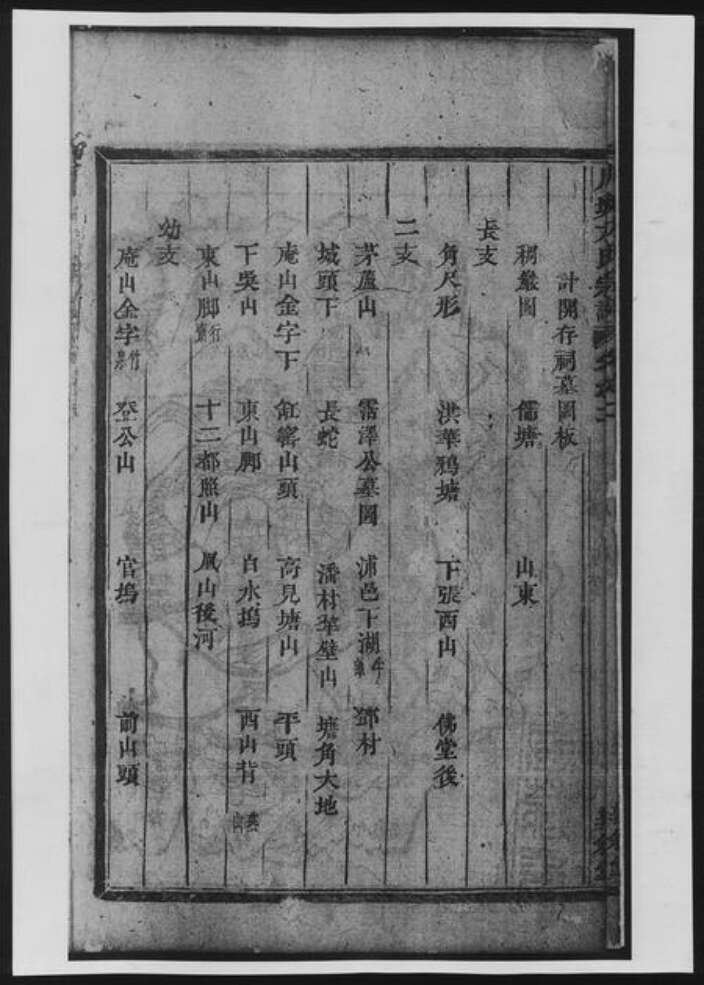 計開存祠墓圖板
祠嚴圖 儒塘 山東
長支
角尺形 洪華鴉塘 下張西山 佛堂後
二支
茅蘆山 雷澤公墓圖 浦邑下湖 鄧村
城頭下 長蛇 潘村犂壁山 塘角大地
庵山金字下 缸窰山頭 高見塘山 平頭
下吳山 東山脚 白水塢 西山背
東山脚 十二都照山 鳳山後河
幼支
庵山金字 公山 官塢 前山頭